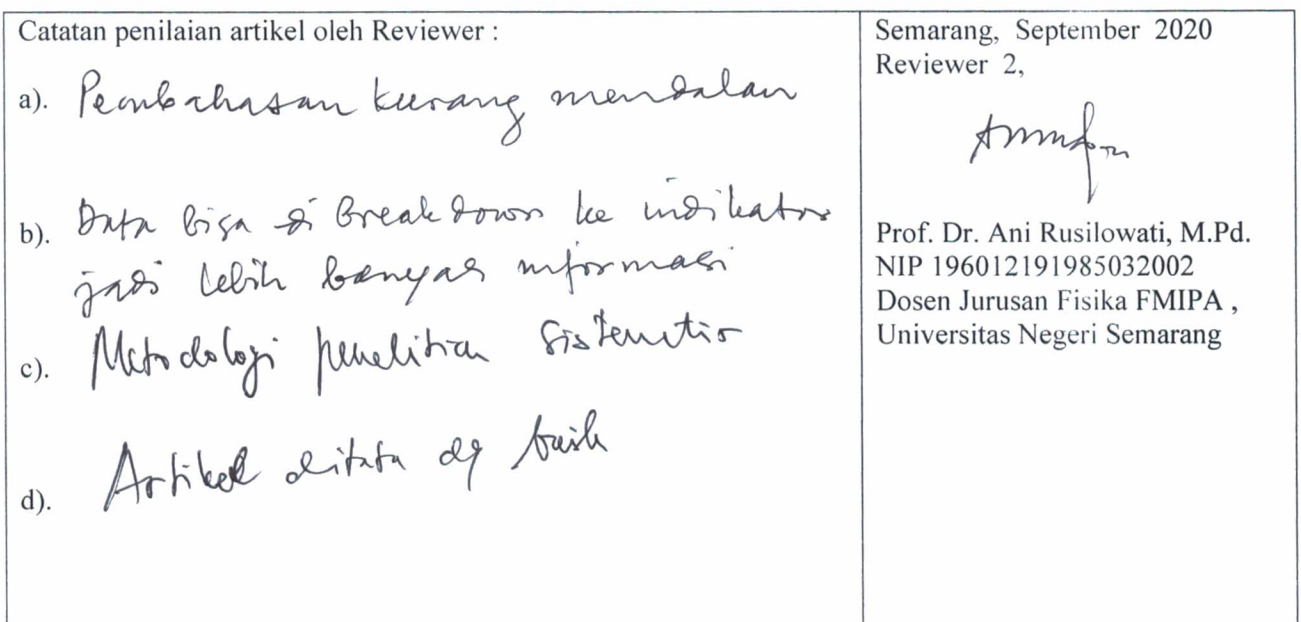 Catatan penilaian artikel oleh Reviewer :
a). Pembahasan kurang mendalam
b). Data bisa di breakdown ke indikator
jadi lebih banyak informasi
c). Metodologi penelitian sistematis
d). Artikel ditata dg baik
Semarang, September 2020
Reviewer 2,
Prof. Dr. Ani Rusilowati, M.Pd.
NIP 196012191985032002
Dosen Jurusan Fisika FMIPA ,
Universitas Negeri Semarang